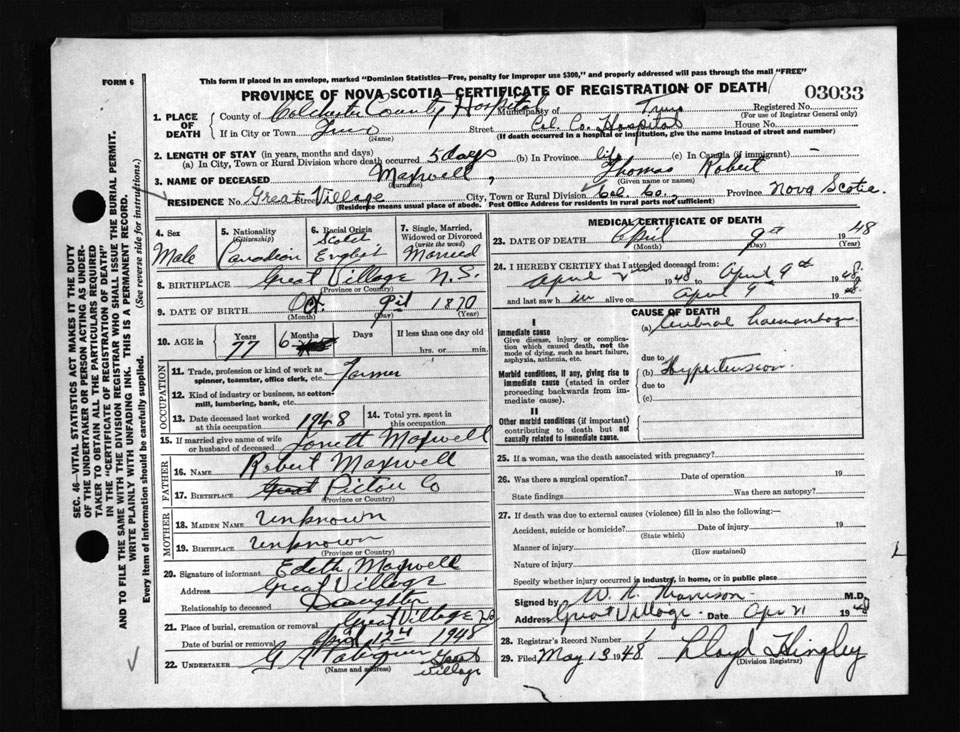 FORM 6
This form if placed in an envelope, marked "Dominion Statistics—Free, penalty for improper use $300," and properly addressed will pass through the mail "FREE"
PROVINCE OF NOVA SCOTIA—CERTIFICATE OF REGISTRATION OF DEATH
03033
1. PLACE OF DEATH
County of Colchester County Hospital Municipality of Truro Registered No.
(For use of Registrar General only)
If in City or Town Truro Street Col. Co. Hospital House No.
(Name) (If death occurred in a hospital or institution, give the name instead of street and number)
2. LENGTH OF STAY (in years, months and days)
(a) In City, Town or Rural Division where death occurred 5 days (b) In Province life (c) In Canada (if immigrant) —
3. NAME OF DECEASED Maxwell, Thomas Robert
(Surname) (Given name or names)
RESIDENCE No. Great Street Village City, Town or Rural Division Col. Co. Province Nova Scotia
(Residence means usual place of abode. Post Office Address for residents in rural parts not sufficient)
4. Sex
Male
5. Nationality (Citizenship)
Canadian
6. Racial Origin
Scotch
English
7. Single, Married, Widowed or Divorced (write the word)
Married
8. BIRTHPLACE Great Village N.S.
(Province or Country)
9. DATE OF BIRTH Oct. 9th 1870
(Month) (Day) (Year)
10. AGE in Years Months Days If less than one day old
77 6 hrs. or min.
OCCUPATION
11. Trade, profession or kind of work as spinner, teamster, office clerk, etc. Farmer
12. Kind of industry or business, as cotton-mill, lumbering, bank, etc.
13. Date deceased last worked at this occupation 1948
14. Total yrs. spent in this occupation
15. If married give name of wife or husband of deceased Maxwell
FATHER
16. NAME Robert Maxwell
17. BIRTHPLACE Great Pictou Co
MOTHER
18. MAIDEN NAME Unknown
19. BIRTHPLACE Unknown
(Province or Country)
20. Signature of informant Edith Maxwell
Address Great Village
Relationship to deceased Daughter
21. Place of burial, cremation or removal Great Village
Date of burial or removal April 12th 1948
22. UNDERTAKER G A Great Village
(Name and address)
MEDICAL CERTIFICATE OF DEATH
23. DATE OF DEATH April 9th 1948
(Month) (Day) (Year)
24. I HEREBY CERTIFY that I attended deceased from:
April 2nd 1948 to April 9th 1948
and last saw him alive on April 9 1948
CAUSE OF DEATH
I
Immediate cause
Give disease, injury or complication which caused death, not the mode of dying, such as heart failure, asphyxia, asthenia, etc.
(a) Cerebral haemorrhage
due to
Morbid conditions, if any, giving rise to immediate cause (stated in order proceeding backwards from immediate cause).
(b) Hypertension
due to
(c)
II
Other morbid conditions (if important) contributing to death but not causally related to immediate cause.
25. If a woman, was the death associated with pregnancy?
26. Was there a surgical operation? Date of operation 19
State findings Was there an autopsy?
27. If death was due to external causes (violence) fill in also the following:—
Accident, suicide or homicide? Date of injury 19
(State which)
Manner of injury
(How sustained)
Nature of injury
Specify whether injury occurred in industry, in home, or in public place
Signed by W. R. M.D.
Address Great Village Date Apr 21 1948
28. Registrar's Record Number 1
29. Filed May 13 1948 Lloyd Kingley
(Division Registrar)
SEC. 46—VITAL STATISTICS ACT MAKES IT THE DUTY
OF THE UNDERTAKER OR PERSON ACTING AS UNDER-
TAKER TO OBTAIN ALL THE PARTICULARS REQUIRED
IN THE "CERTIFICATE OF REGISTRATION OF DEATH"
AND TO FILE THE SAME WITH THE DIVISION REGISTRAR WHO SHALL ISSUE THE BURIAL PERMIT.
WRITE PLAINLY WITH UNFADING INK. THIS IS A PERMANENT RECORD.
Every item of information should be carefully supplied. (See reverse side for instructions.)